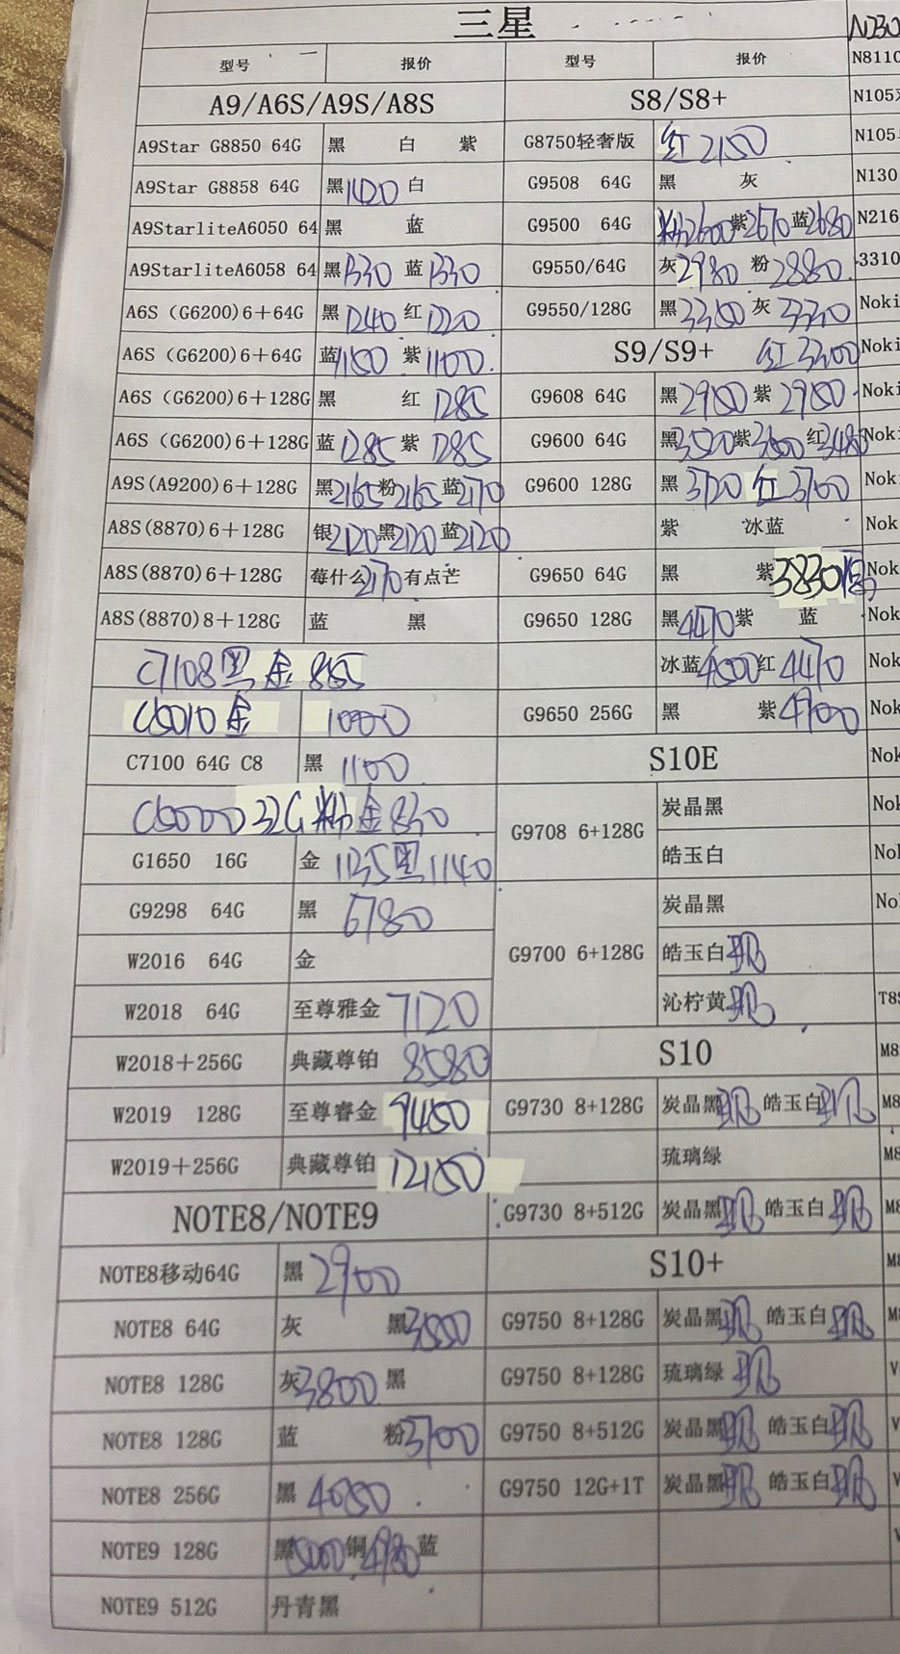 三星
型号 报价 型号 报价 N8110
A9/A6S/A9S/A8S S8/S8+
A9Star G8850 64G 黑 白 紫 G8750轻奢版 红2150 N105
A9Star G8858 64G 黑1420 白 G9508 64G 黑 灰 N130
A9StarliteA6050 64 黑 蓝 G9500 64G 粉2600紫2670蓝2680 N216
A9StarliteA6058 64 黑1330 蓝1330 G9550/64G 灰2980 粉2880 3310
A6S（G6200)6＋64G 黑1240红1220 G9550/128G 黑3350灰3330 Noki
A6S（G6200)6＋64G 蓝1150 紫1100 S9/S9+ 红3300 Noki
A6S（G6200)6＋128G 黑 红1285 G9608 64G 黑2950紫2950 Noki
A6S（G6200)6＋128G 蓝1285紫1285 G9600 64G 黑3520紫3500红3480 Noki
A9S(A9200)6＋128G 黑2165粉2165蓝2170 G9600 128G 黑3720红3700 Nok
A8S(8870)6＋128G 银2120黑2120蓝2120 紫 冰蓝 Nok
A8S(8870)6＋128G 莓什么2170有点芒 G9650 64G 黑 紫3830 Nok
A8S(8870)8＋128G 蓝 黑 G9650 128G 黑4470紫 蓝 Nok
C7108黑金865 冰蓝4500红4470 Nok
C5010金 1000 G9650 256G 黑 紫4900 Nok
C7100 64G C8 黑1100 S10E Nok
C5000 32G粉金830 G9708 6+128G 炭晶黑 Nok
皓玉白 Nol
G1650 16G 金1135黑1140
G9298 64G 黑6780 G9700 6+128G 炭晶黑 No
W2016 64G 金 皓玉白现
W2018 64G 至尊雅金7120 沁柠黄现 T8S
W2018＋256G 典藏尊铂8580 S10 M8
W2019 128G 至尊睿金9450 G9730 8+128G 炭晶黑现 皓玉白现 M8
W2019＋256G 典藏尊铂12150 琉璃绿 M8
NOTE8/NOTE9 G9730 8+512G 炭晶黑现 皓玉白现 M8
NOTE8移动64G 黑2900 S10+ M8
NOTE8 64G 灰 黑3550 G9750 8+128G 炭晶黑现 皓玉白现
NOTE8 128G 灰3800黑 G9750 8+128G 琉璃绿现 V
NOTE8 128G 蓝 粉3700 G9750 8+512G 炭晶黑现 皓玉白现 V
NOTE8 256G 黑4050 G9750 12G+1T 炭晶黑现 皓玉白现 V
NOTE9 128G 黑5000铜4980蓝
NOTE9 512G 丹青黑